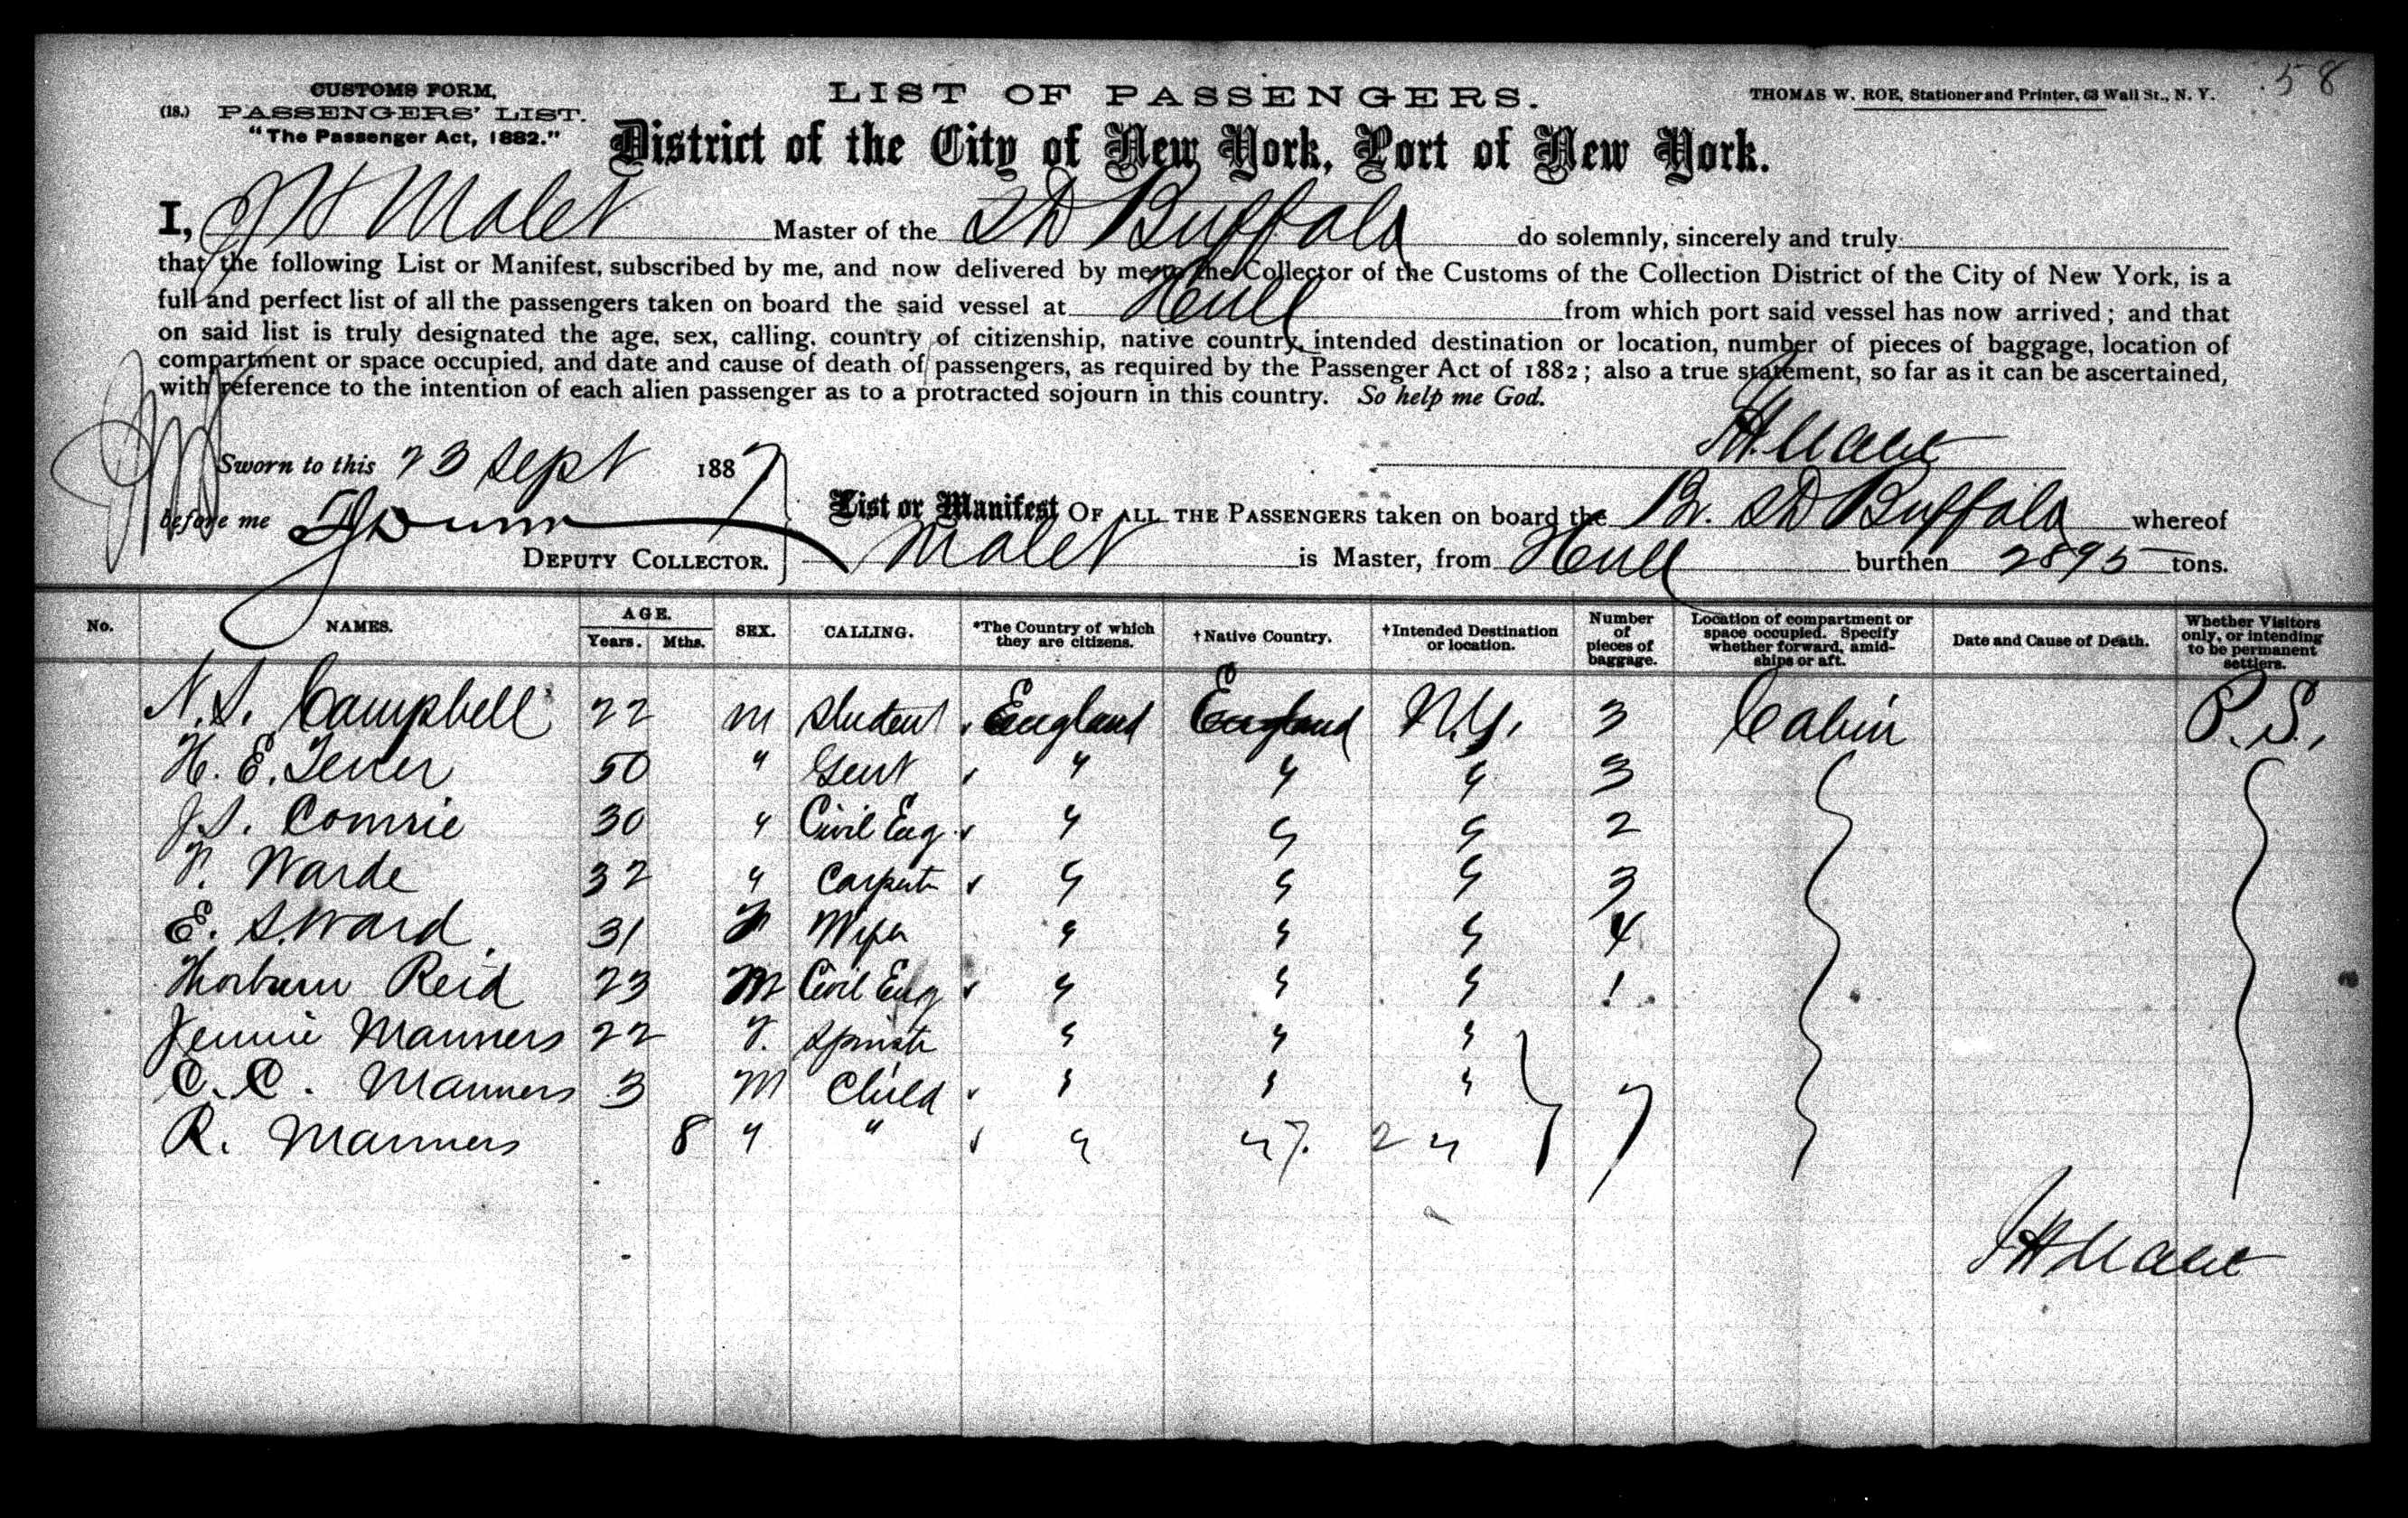 58
CUSTOMS FORM.
(18.) PASSENGERS' LIST.
"The Passenger Act, 1882."
LIST OF PASSENGERS.
THOMAS W. ROE, Stationer and Printer, 63 Wall St., N. Y.
District of the City of New York, Port of New York.
I, J H Malet Master of the SS Buffalo do solemnly, sincerely and truly
that the following List or Manifest, subscribed by me, and now delivered by me to the Collector of the Customs of the Collection District of the City of New York, is a
full and perfect list of all the passengers taken on board the said vessel at Hull from which port said vessel has now arrived; and that
on said list is truly designated the age, sex, calling, country of citizenship, native country, intended destination or location, number of pieces of baggage, location of
compartment or space occupied, and date and cause of death of passengers, as required by the Passenger Act of 1882; also a true statement, so far as it can be ascertained,
with reference to the intention of each alien passenger as to a protracted sojourn in this country. So help me God.
JH Malet
Sworn to this 23 Sept 1887
before me Dunn
DEPUTY COLLECTOR.
List or Manifest OF ALL THE PASSENGERS taken on board the Br. SS Buffalo whereof
Malet is Master, from Hull burthen 2895 tons.
No. NAMES. AGE. Years. Mths. SEX. CALLING. *The Country of which they are citizens. †Native Country. †Intended Destination or location. Number of pieces of baggage. Location of compartment or space occupied. Specify whether forward, amidships or aft. Date and Cause of Death. Whether Visitors only, or intending to be permanent settlers.
N. S. Campbell 22 M Student England England N.Y. 3 Cabin P.S.
H. E. Tener 50 " Gent " " " 3
J. S. Comrie 30 " Civil Eng " " " 2
Warde 32 " Carpentr " " " 3
E. S. Ward 31 F Wife " " " 4
Thorburn Reid 23 M Civil Eng " " " 1
Jennie Manners 22 F. Spinstr " " "
C. C. Manners 3 M Child " " " 7
R. Manners 8 " " " " 7. 2 "
JH Malet